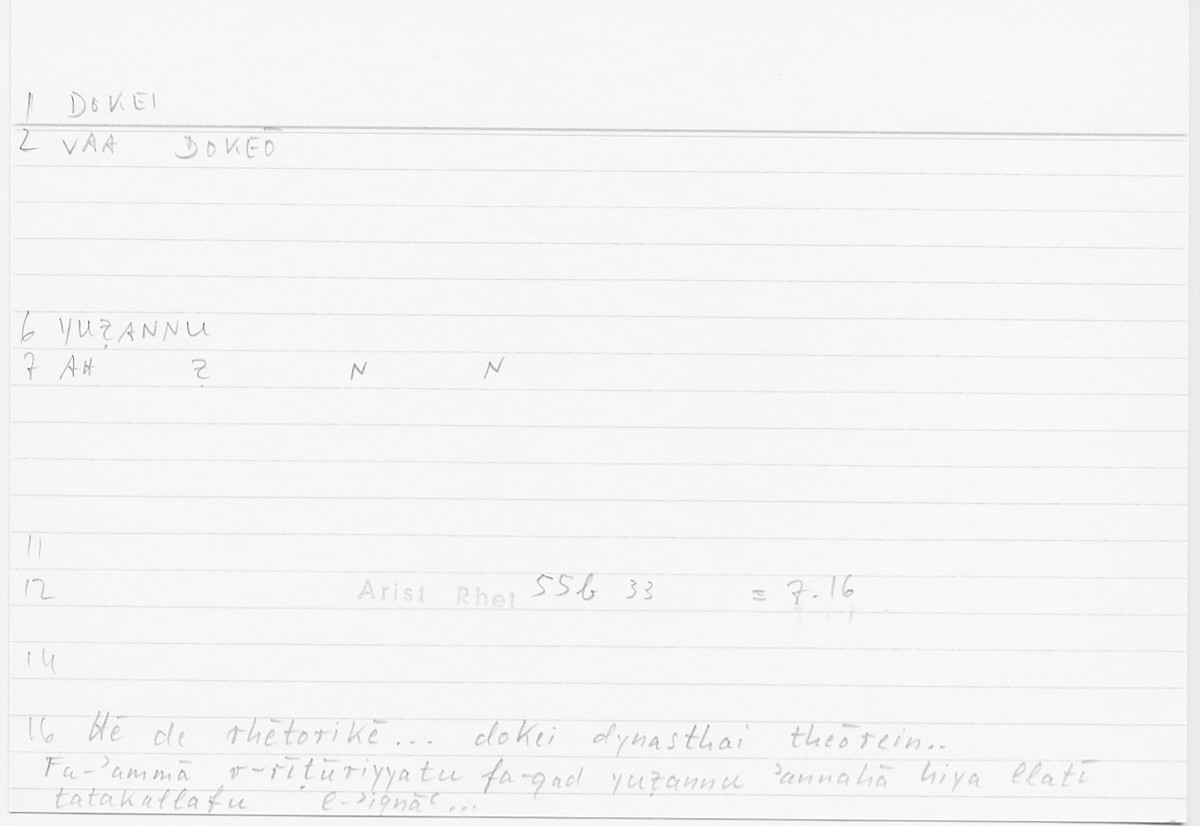 1 DOKEI
2 VAA DOKEŌ
6 YUẒANNU
7 AH Ẓ N N
11
12 Arist Rhet 55b 33 = 7.16
14
16 Hē de rhētorikē... dokei dynasthai theōrein..
Fa-ʾammā r-rīṭūriyyatu fa-qad yuẓannu ʾannahā hiya llatī
tatakallafu l-ʾiqnāʿ...